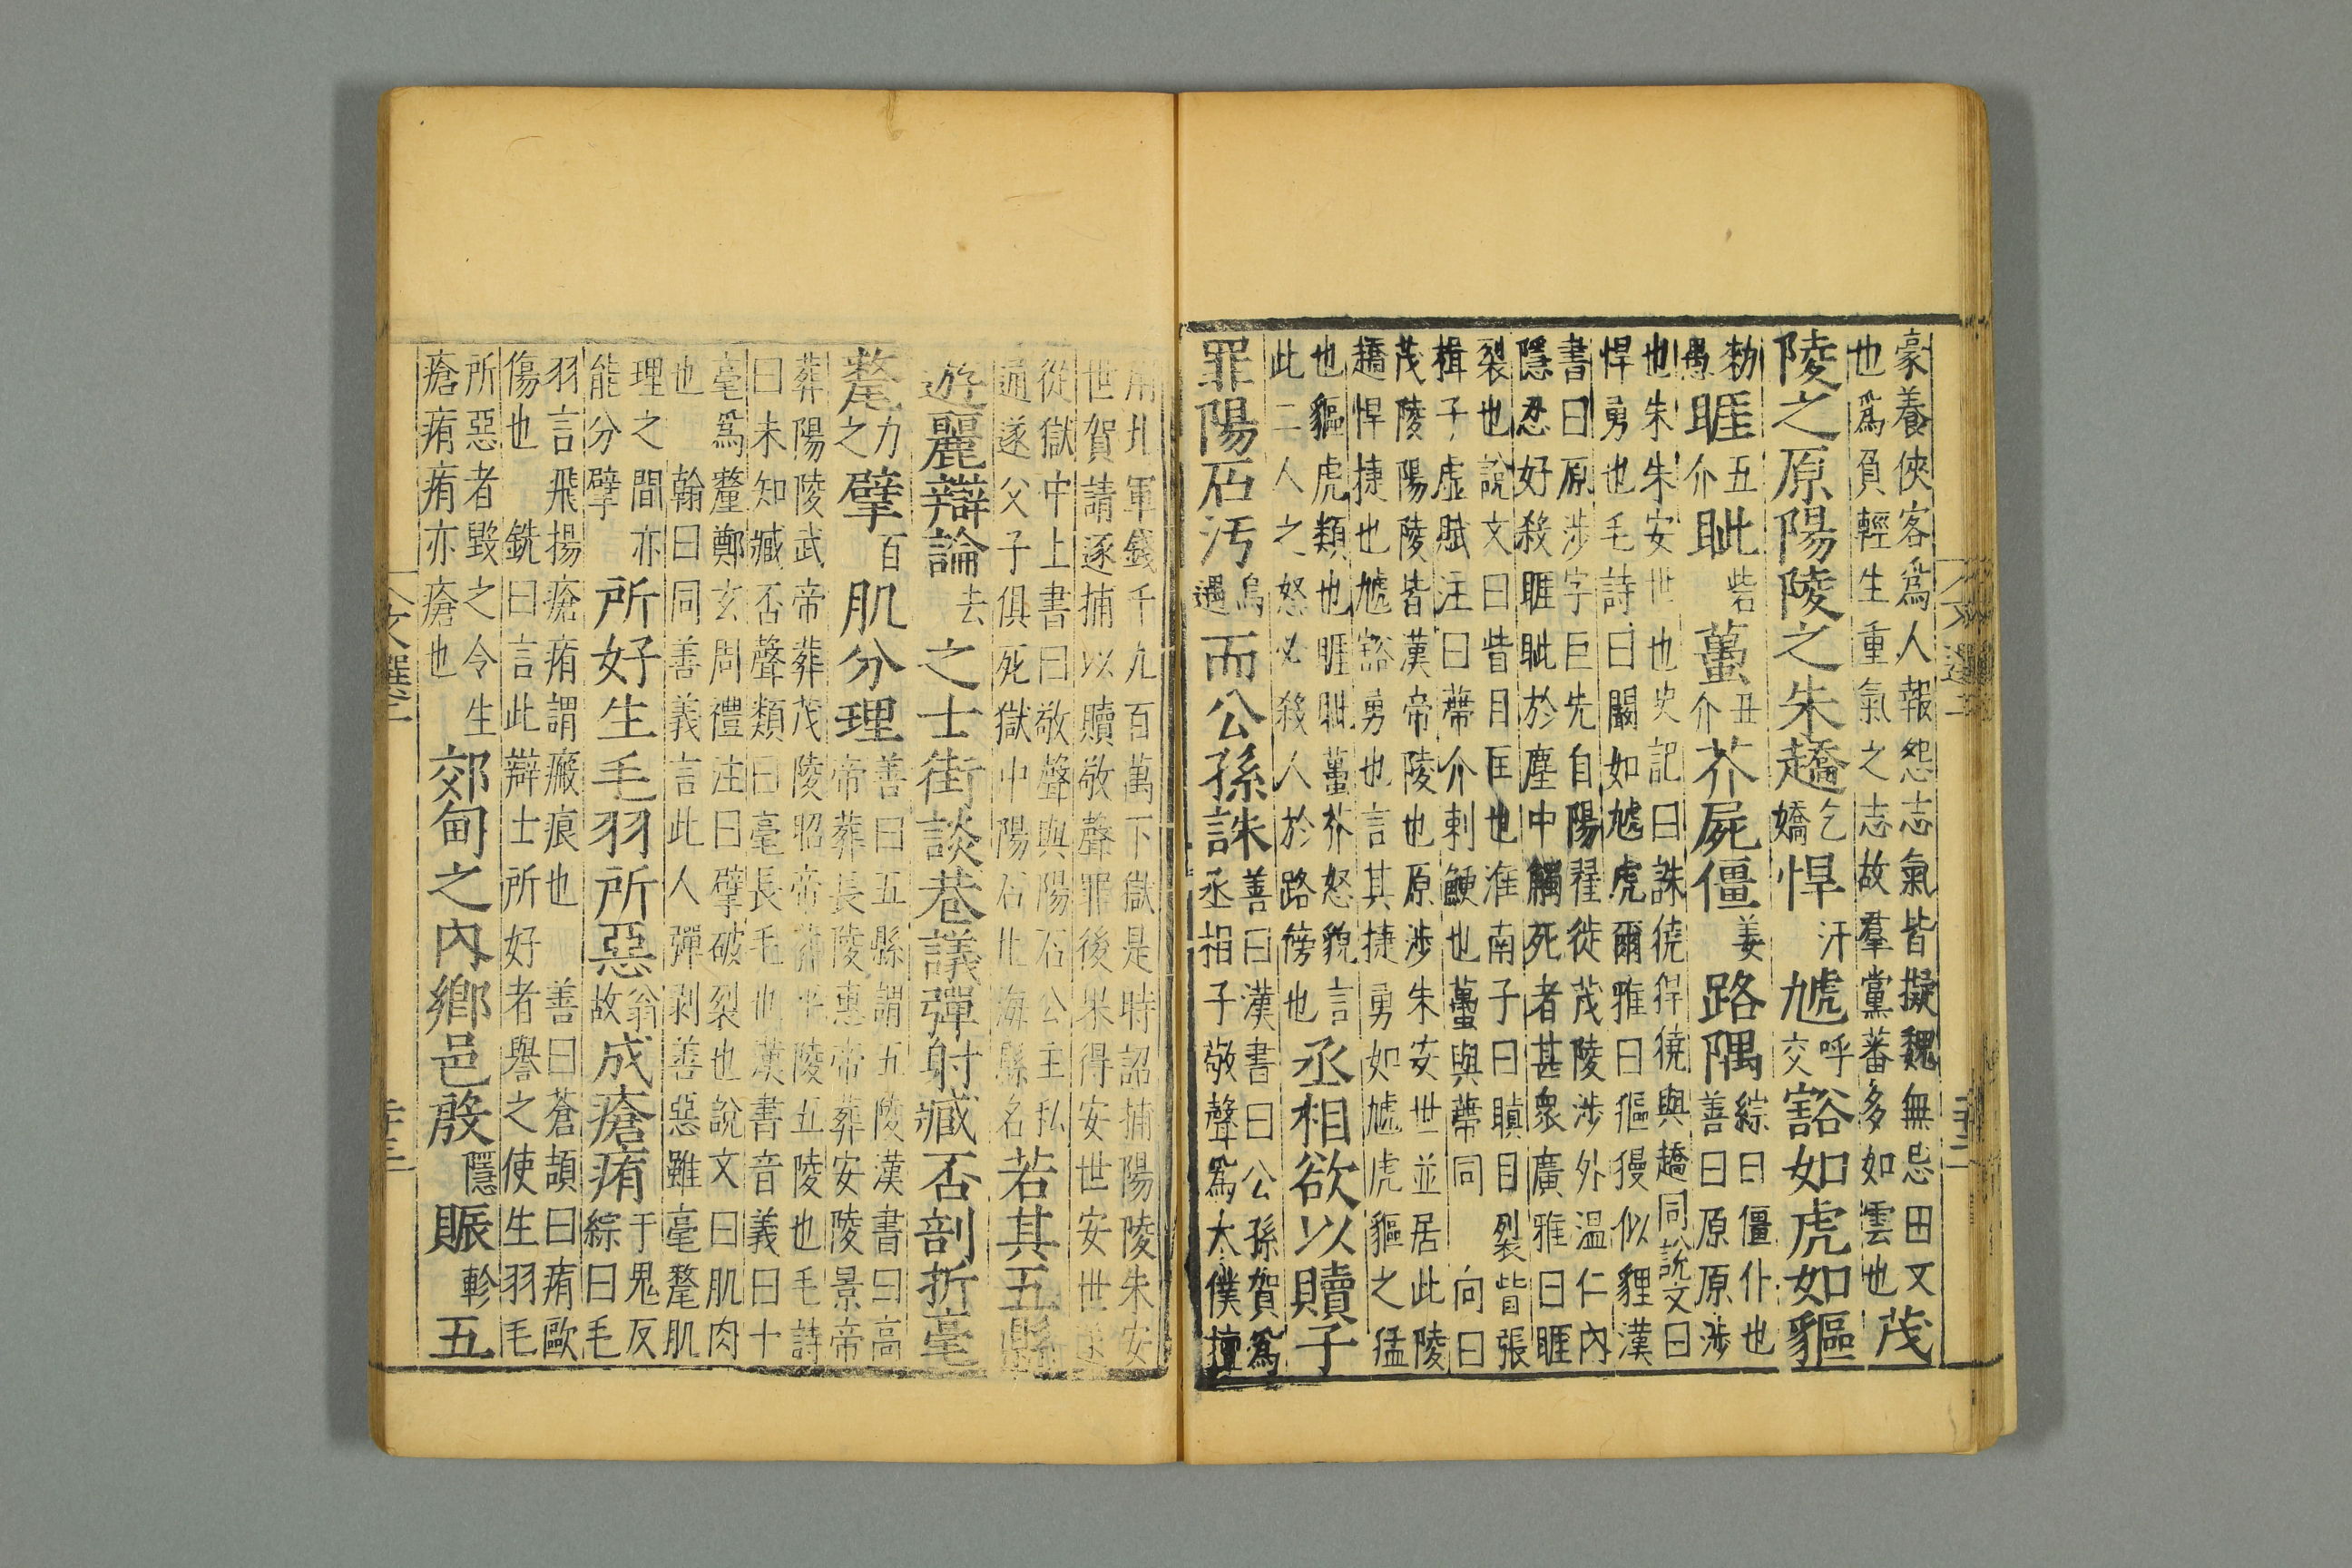 豪養俠客爲人報怨志氣皆擬魏無忌田文
也爲負輕生重氣之志故羣黨蕃多如雲也
茂
陵之原陽陵之朱趫乞嬌悍汗虓呼交豁如虎如貙
勑愚睚五介眦砦蠆丑介芥屍僵姜路隅綜曰僵仆也
善曰原原涉
也朱朱安世也史記曰誅徺猂徺與趫同說文曰
悍勇也毛詩曰闞如虓虎爾雅曰貙獌似貍漢
書曰原涉字巨先自陽翟徙茂陵涉外温仁內
隱忍好殺睚眦於塵中觸死者甚衆廣雅曰睚
裂也說文曰眥目匡也淮南子曰瞋目裂眥張
楫子虛賦注曰蔕介刺鯁也蠆與蔕同 向曰
茂陵陽陵皆漢帝陵也原涉朱安世並居此陵
趫悍捷也虓豁勇也言其捷勇如虓虎貙之猛
也貙虎類也睚眦蠆芥怒貌言
此二人之怒必殺人於路傍也
丞相欲以贖子
罪陽石汚烏過而公孫誅善曰漢書曰公孫賀爲
丞相子敬聲爲太僕擅
用北軍錢千九百萬下獄是時詔捕陽陵朱安
世賀請逐捕以贖敬聲罪後果得安世安世遂
從獄中上書曰敬聲與陽石公主私
通遂父子俱死獄中陽石北海縣名
若其五縣
遊麗辯論去之士街談巷議彈射臧否剖析毫
氂力之擘百肌分理善曰五縣謂五陵漢書曰高
帝葬長陵惠帝葬安陵景帝
葬陽陵武帝葬茂陵昭帝葬平陵五陵也毛詩
曰未知臧否聲類曰毫長毛也漢書音義曰十
毫爲氂鄭玄周禮注曰擘破裂也說文曰肌肉
也 翰曰同善義言此人彈剥善惡雖毫氂肌
理之間亦
能分擘
所好生毛羽所惡翁故成瘡痏于鬼反
綜曰毛
羽言飛揚瘡痏謂瘢痕也 善曰蒼頡曰痏歐
傷也 銑曰言此辯士所好者譽之使生羽毛
所惡者毀之令生
瘡痏痏亦瘡也
郊甸之內鄉邑殷隱賑軫五